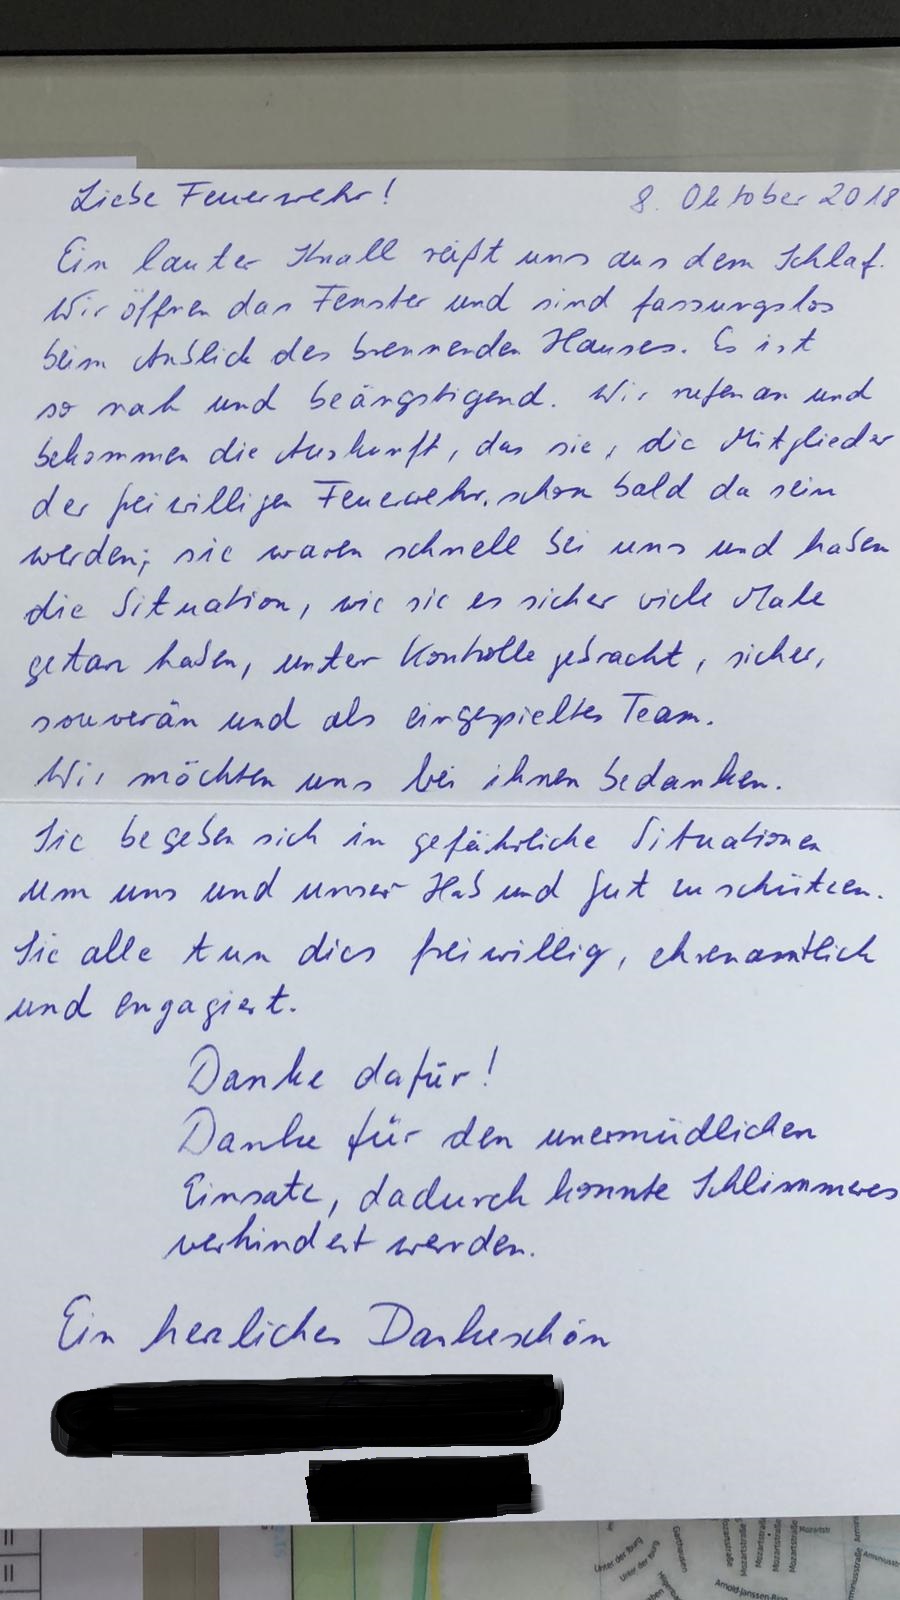 Liebe Feuerwehr! 8. Oktober 2018
Ein lauter Knall reißt uns aus dem Schlaf.
Wir öffnen das Fenster und sind fassungslos
beim Anblick des brennenden Hauses. Es ist
so nah und beängstigend. Wir rufen an und
bekommen die Auskunft, das sie, die Mitglieder
der freiwilligen Feuerwehr, schon bald da sein
werden; sie waren schnell bei uns und haben
die Situation, wie sie es sicher viele Male
getan haben, unter Kontrolle gebracht, sicher,
souverän und als eingespieltes Team.
Wir möchten uns bei ihnen bedanken.
Sie begeben sich in gefährliche Situationen
um uns und unser Hab und Gut zu schützen.
Sie alle tun dies freiwillig, ehrenamtlich
und engagiert.
Danke dafür!
Danke für den unermüdlichen
Einsatz, dadurch konnte Schlimmeres
verhindert werden.
Ein herzliches Dankeschön
II
II
Unter der Burg
Unter der Burg
Mozartstraße
Mozartstraße
Mozartstraße
Mozartstr
Arnold-Janssen-Ring